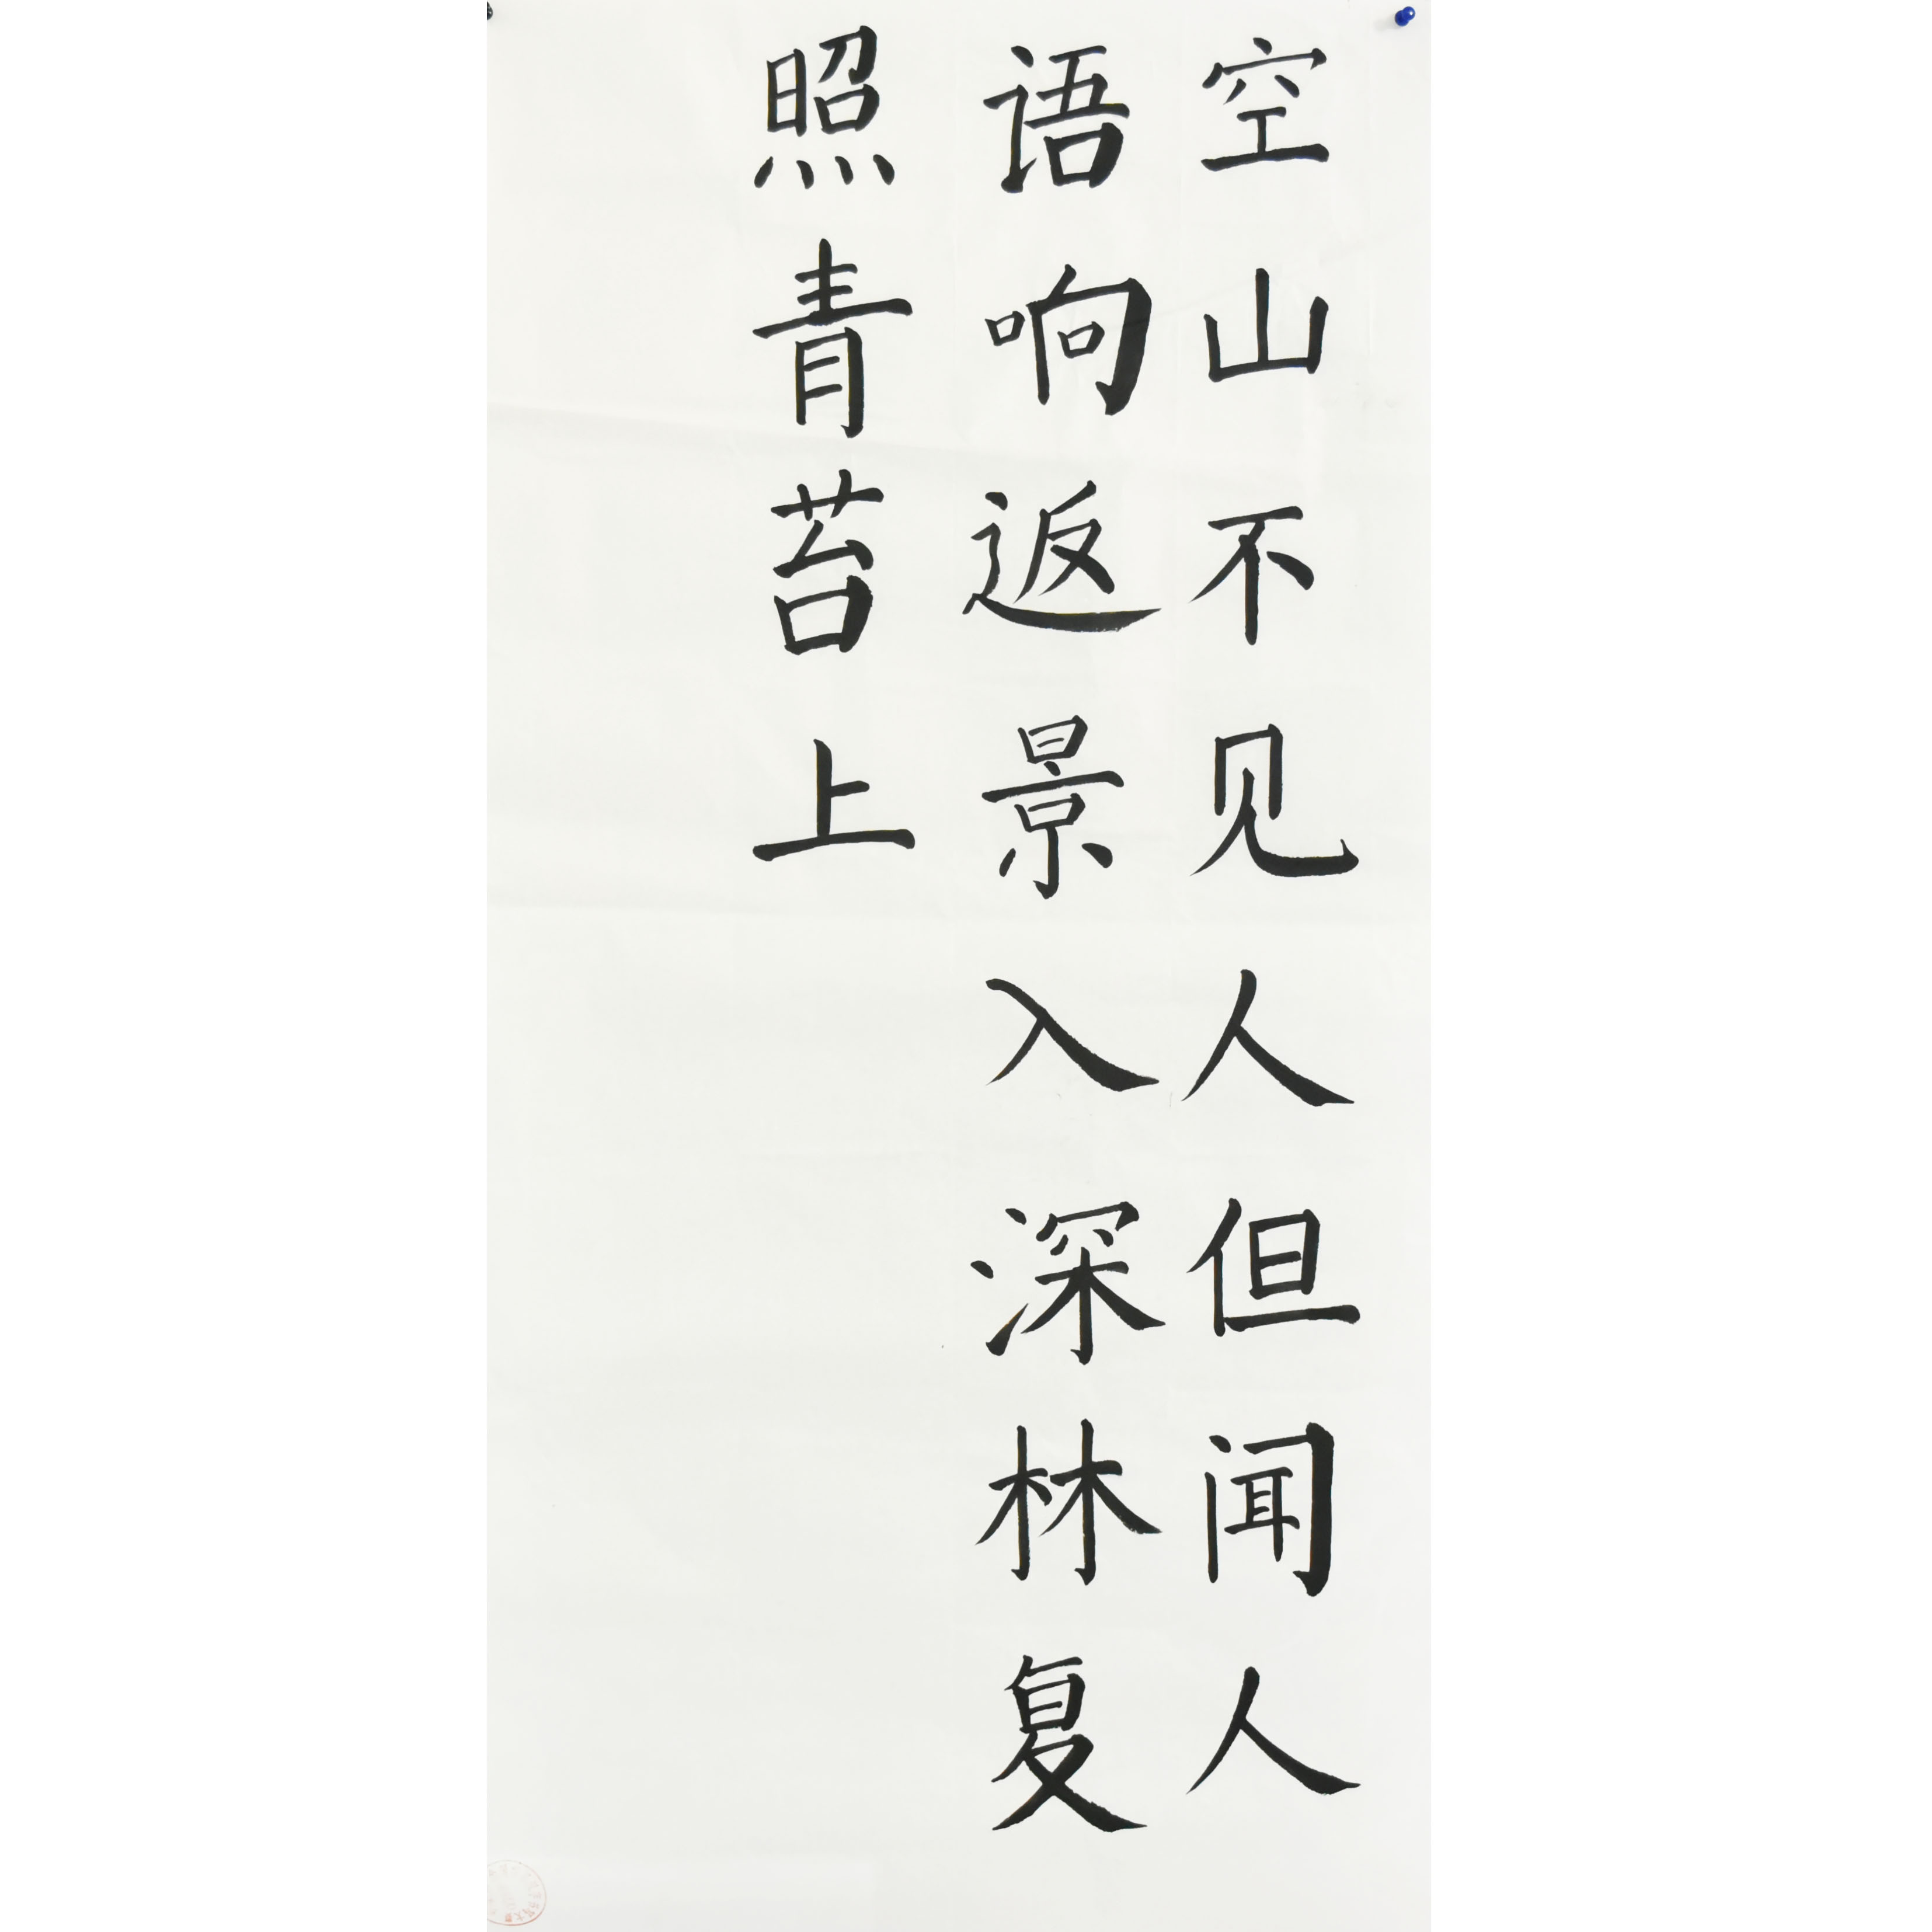 空山不见人但闻人
语响返景入深林复
照青苔上